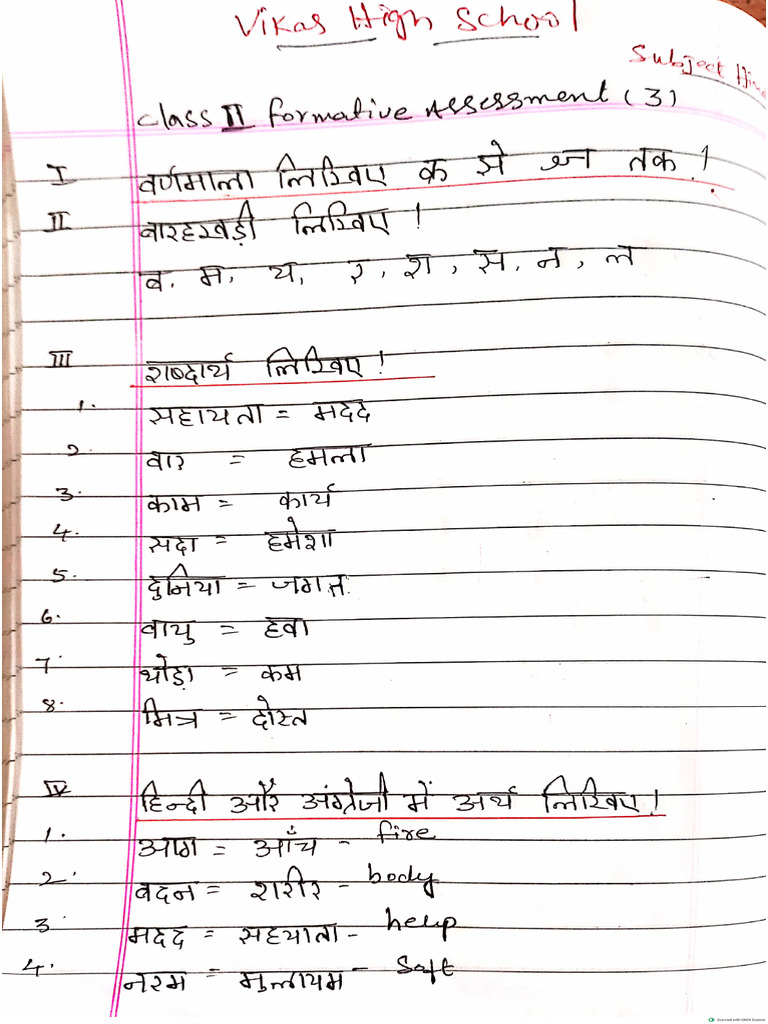 Vikas High School
Subject Hin
Class II formative Assessment (3)
I वर्णमाला लिखिए क से श्र तक !
II बारहखड़ी लिखिए !
ब, म, य, र, श, स, न, ल
III शब्दार्थ लिखिए !
1. सहायता = मदद
2. वार = हमला
3. काम = कार्य
4. सदा = हमेशा
5. दुनिया = जगत
6. वायु = हवा
7. थोड़ा = कम
8. मित्र = दोस्त
IV हिन्दी और अंग्रेजी में अर्थ लिखिए !
1. आग = आँच - fire
2. बदन = शरीर - body
3. मदद = सहयाता - help
4. नरम = मुलायम - Soft
Scanned with OKEN Scanner